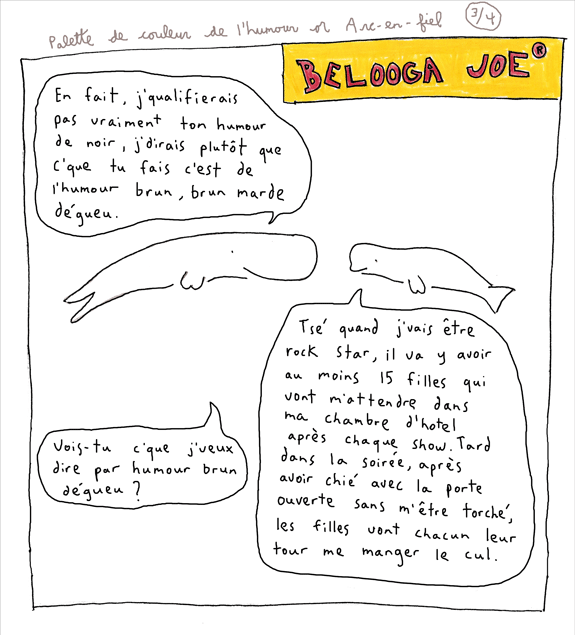 Palette de couleur de l'humour or Arc-en-fiel 3/4
BELOOGA JOE®
En fait, j'qualifierais
pas vraiment ton humour
de noir, j'dirais plutôt que
c'que tu fais c'est de
l'humour brun, brun marde
dégueu.
Tsé quand j'vais être
rock star, il va y avoir
au moins 15 filles qui
vont m'attendre dans
ma chambre d'hotel
après chaque show. Tard
dans la soirée, après
avoir chié avec la porte
ouverte sans m'être torché,
les filles vont chacun leur
tour me manger le cul.
Vois-tu c'que j'veux
dire par humour brun
dégueu ?